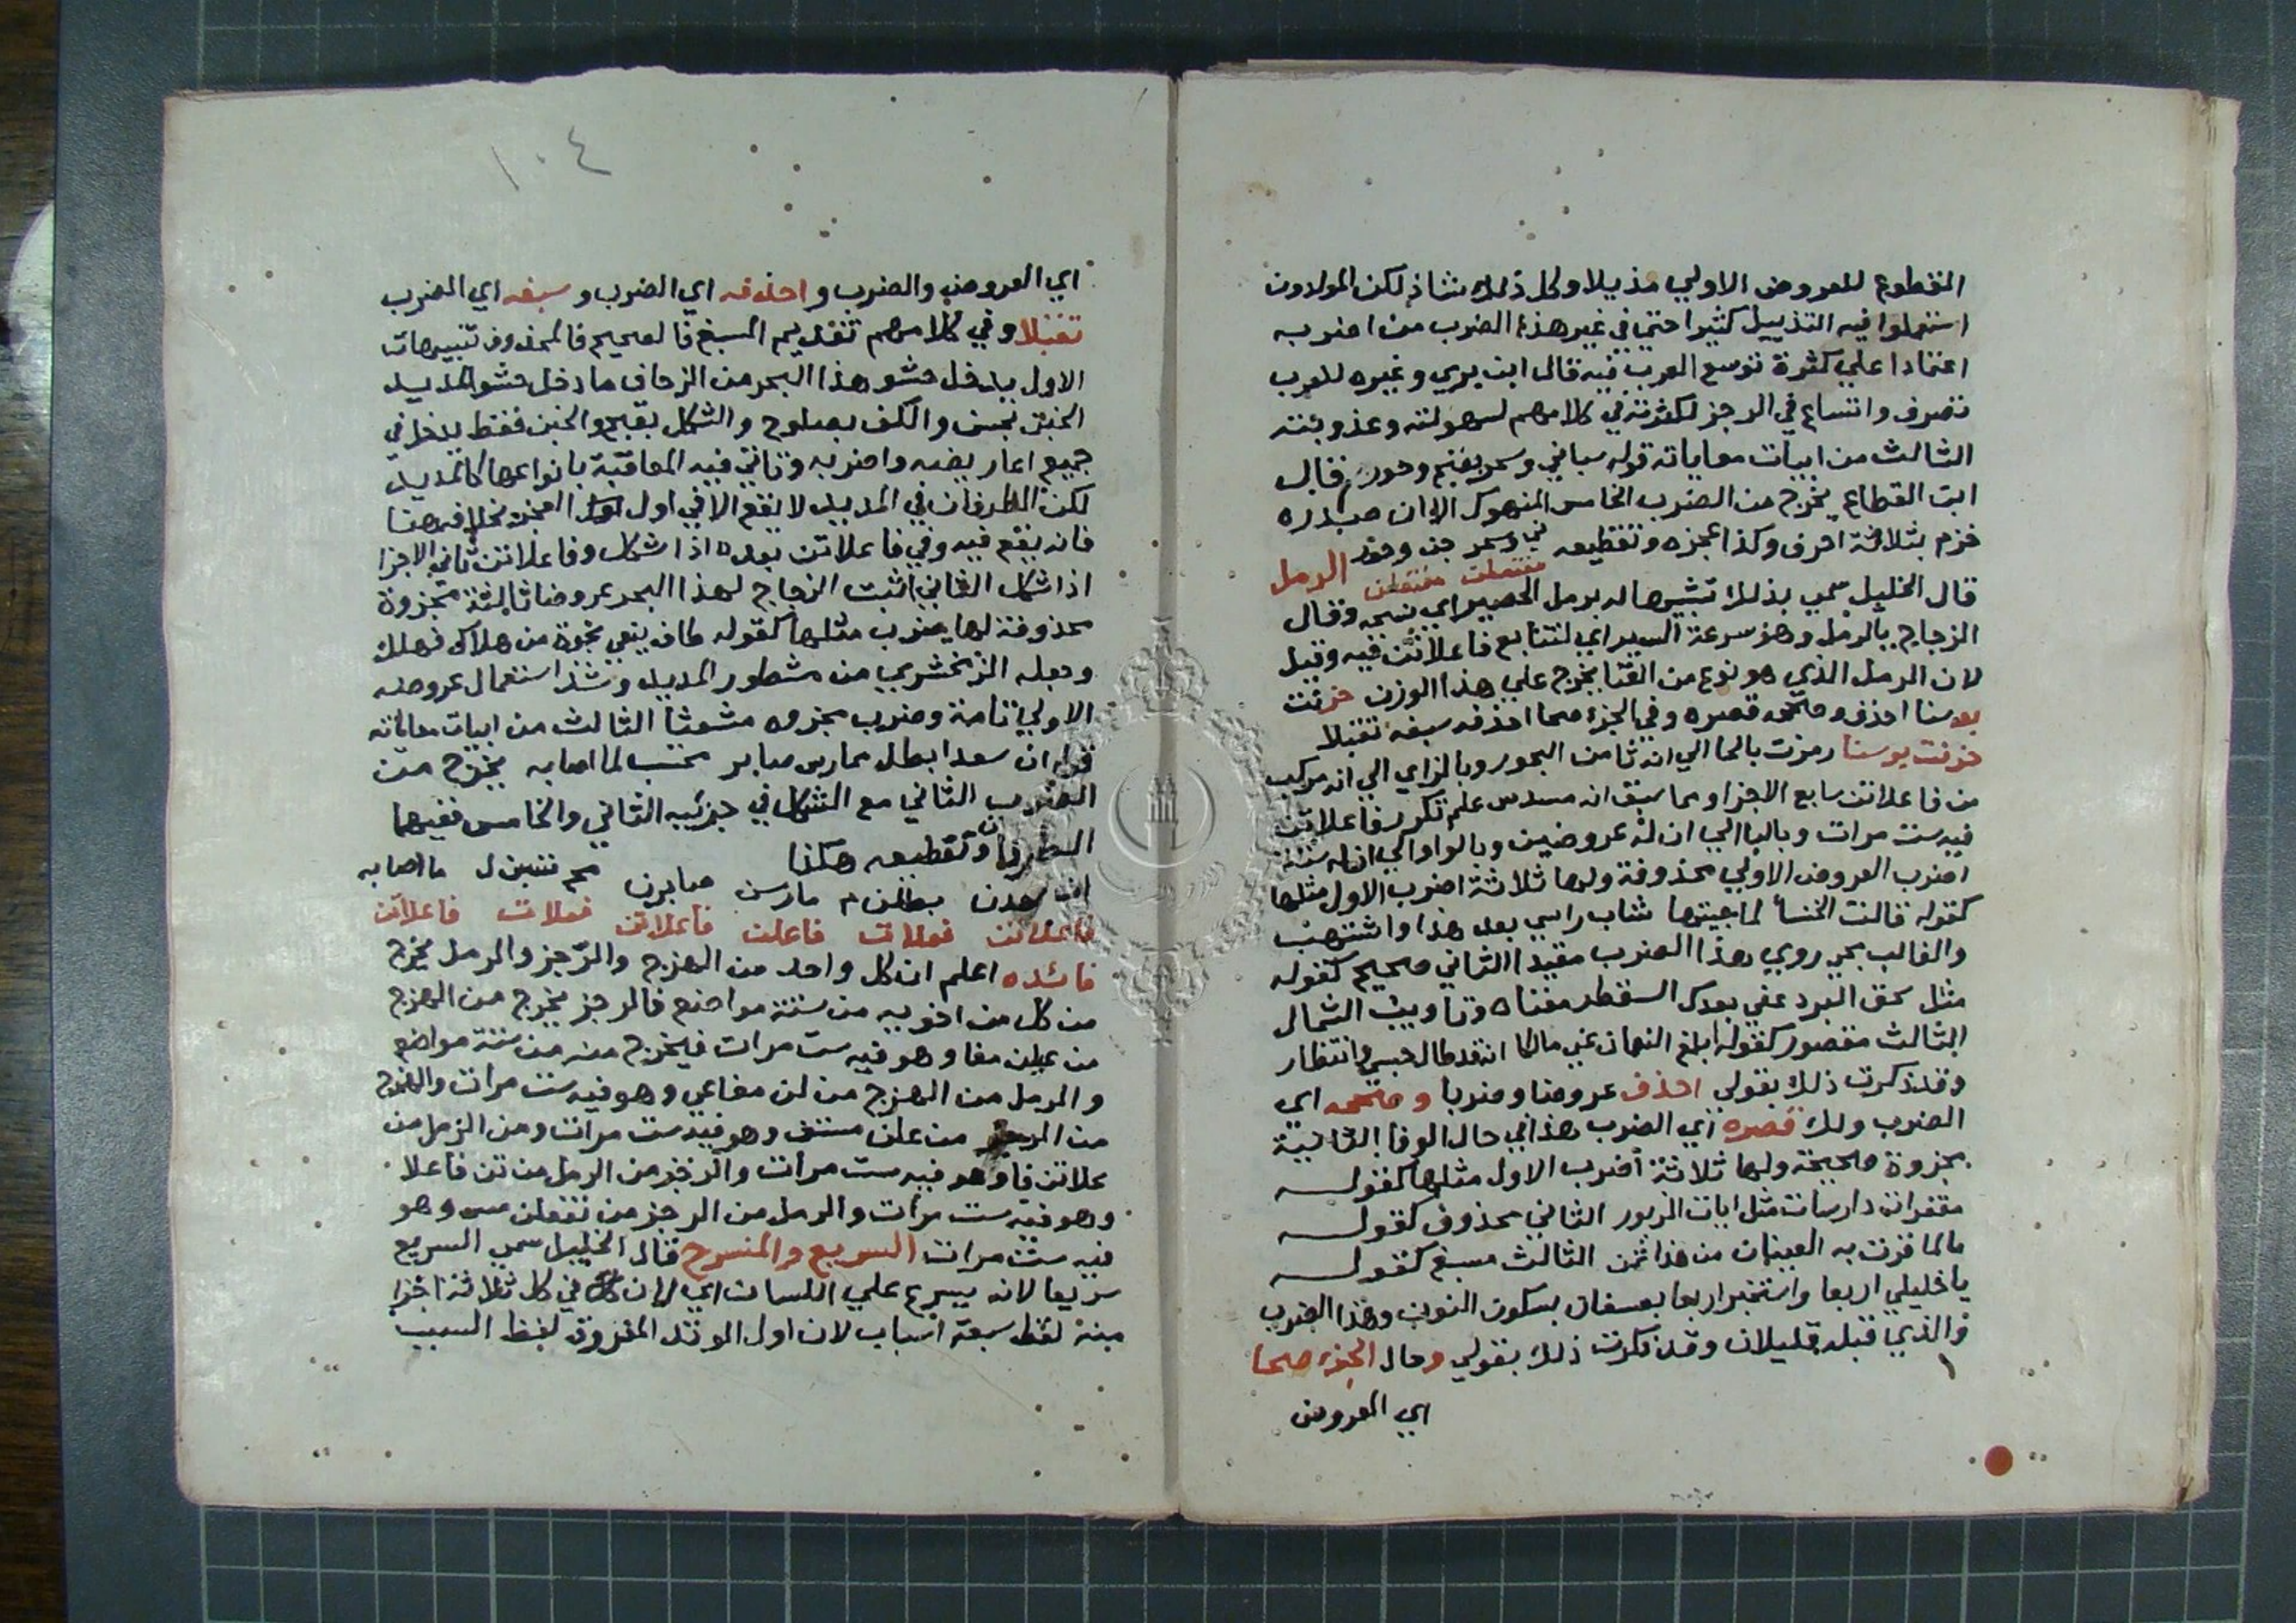 المقطوع للعروض الاولي مذيلا وكل ذلك شاذ لكن المولدون
استعملوا فيه التذييل كثيرا حتي في غير هذا الضرب من اضربه
اعتمادا علي كثرة توسع العرب فيه قال ابن بري وغيره للعرب
تصرف واتساع في الرجز لكثرته في كلامهم لسهولته وعذوبته
الثالث من ابيات معاياته قوله سباني وسمر بفنم وحور قال
ابن القطاع يخرج من الضرب الخامس المنهوك الا ان صدره
خزم بثلاثة احرف وكذا عجزه وتقطيعه الرمل
مفتعلن مفتعلن
قال الخليل سمي بذلك تشبيها له برمل الحصير اي نسجه وقال
الزجاج بالرمل وهو سرعة السير اي لتتابع فاعلاتن فيه وقيل
لان الرمل الذي هو نوع من الغنا يخرج علي هذا الوزن حزئت
بوسنا احذف وصححه قصره وفي الجزء صحا احذفه سبغه تقبلا
حزنت بوسنا رمزت بالحا الي انه ثامن البحور وبالزاي الي انه مركب
من فاعلاتن سابع الاجزا ومما سبق انه مسدس علم تكرر فاعلاتن
فيه ست مرات وبالبا الي ان له عروضين وبالواو الي ان له ستة
اضرب العروض الاولي محذوفة ولها ثلاثة اضرب الاول مثلها
كقوله قالت الخنسأ لما جيتها شاب راسي بعد هذا واشتهب
والغالب بجي روي هذا الضرب مقيدا الثاني صحيح كقوله
مثل سحق البرد عفي بعدك السقطر مغناه وتاويب الشمال
الثالث مقصور كقوله ابلغ النعمان عني مالكا انه قد طال حبسي وانتظار
وقد ذكرت ذلك بقولي احذف عروضا وضربا وصححه اي
الضرب ولك قصره اي الضرب هذا في حال الوفا الثانية
مجزوة صحيحة ولها ثلاثة أضرب الاول مثلها كقوله
مقفرات دارسات مثل ايات الزبور الثاني محذوف كقوله
مالما قرت به العينان من هذا ثمن الثالث مسبغ كقوله
يا خليلي اربعا واستخبرا ربعا بعسفان بسكون النون وهذا الضرب
والذي قبله قليلان وقد ذكرت ذلك بقولي وحال الجزء صحا
اي العروض
١٠٤
اي العروض والضرب واحذفه اي الضرب وسبغه اي الضرب
تقبلا وفي كلامهم تقديم المسبغ فالصحيح فالمحذوف تنبيهات
الاول يدخل حشو هذا البحر من الزحاف ما دخل حشو المديد
الخبن بحسن والكف بصلوح والشكل بقبح والخبن فقط يدخل في
جميع اعاريضه واضربه وتاتي فيه المعاقبة بانواعها كالمديد
لكن الطرفان في المديد لا يقع الا في اول العجز بخلافه هنا
فانه يقع فيه وفي فاعلاتن بعده اذا شكل وفاعلاتن ثاني الاجزا
اذا شكل الثاني اثبت الزجاج لهذا البحر عروضا ثالثة مجزوة
محذوفة لها ضرب مثلها كقوله طاف يبغي نجوة من هلاك فهلك
وجعله الزمخشري من مشطور المديد وشذ استعمال عروضه
الاولي تامة وضرب مجزوه مشعثا الثالث من ابيات معاياته
قوله ان سعدا بطل ممارس صابر محتسب لما اصابه يخرج من
الضرب الثاني مع الشكل في جزئيه الثاني والخامس ففيهما
الطرفان وتقطيعه هكذا
ان سعدن بطلن م مارسن صابرن محتسبن ل ما اصابه
فاعلاتن فعلات فاعلن فاعلاتن فعلات فاعلاتن
فائده اعلم ان كل واحد من الهزج والرجز والرمل يخرج
من كل من اخويه من ستة مواضع فالرجز يخرج من الهزج
من عيلن مفا وهو فيه ست مرات فيخرج منه من ستة مواضع
والرمل من الهزج من لن مفاعي وهو فيه ست مرات والهزج
من الرجز من علن مستف وهو فيه ست مرات ومن الرمل من
علاتن فا وهو فيه ست مرات والرجز من الرمل من تن فاعلا
وهو فيه ست مرات والرمل من الرجز من تفعلن مس وهو
فيه ست مرات السريع والمنسرح قال الخليل سمي السريع
سريعا لانه يسرع علي اللسان اي لان في كل ثلاثة اجزا
منه لفظ سبعة اسباب لان اول الوتد المفروق لفظ السبب